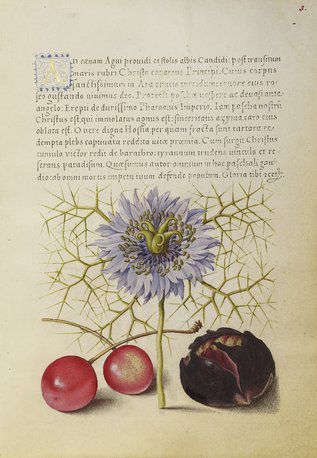 3.
AD cœnam Agni prouidi et stolis albis Candidi: post transitum
maris rubri Christo canamus Principi. Cuius corpus
sanctissimum in Ara crucis torridum: cruore eius ro-
seo gustando viuimus deo. Protecti paschæ vespere ac deuastante
angelo: Erepti de durissimo Pharaonis Imperio. Iam pascha nostrũ
Christus est, qui immolatus agnus est: sinceritatis azyma, caro eius
oblata est. O vere digna Hostia per quam fracta sunt tartara re-
dempta plebs captiuata reddita vitæ præmia. Cum surgit Christus
tumulo victor redit de barathro: tyrannum trudens vinculo et re-
serans paradisum. Quæsumus autor omnium in hoc paschali gau-
dio: ab omni mortis impetu tuum defende populum. Gloria tibi